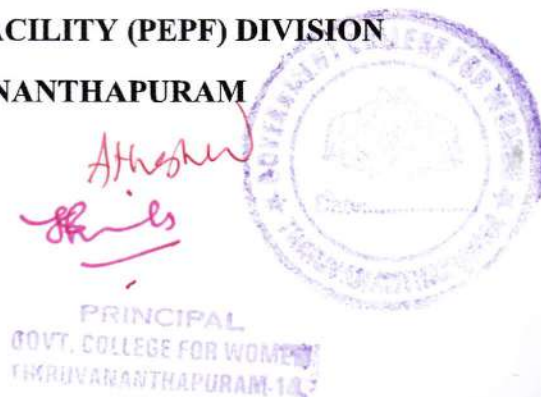 ACILITY (PEPF) DIVISION
NANTHAPURAM
PRINCIPAL
GOVT. COLLEGE FOR WOMEN
THIRUVANANTHAPURAM-14
GOVERNMENT COLLEGE FOR WOMEN
THIRUVANANTHAPURAM